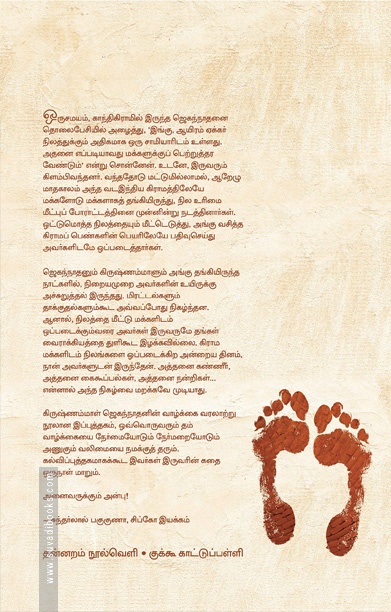 ஒருசமயம், காந்திகிராமில் இருந்த ஜெகந்நாதனை
தொலைபேசியில் அழைத்து, 'இங்கு, ஆயிரம் ஏக்கர்
நிலத்துக்கும் அதிகமாக ஒரு சாமியாரிடம் உள்ளது.
அதனை எப்படியாவது மக்களுக்குப் பெற்றுத்தர
வேண்டும்' என்று சொன்னேன். உடனே, இருவரும்
கிளம்பிவந்தனர். வந்ததோடு மட்டுமில்லாமல், ஆறேழு
மாதகாலம் அந்த வடஇந்திய கிராமத்திலேயே
மக்களோடு மக்களாகத் தங்கியிருந்து, நில உரிமை
மீட்புப் போராட்டத்தினை முன்னின்று நடத்தினார்கள்.
ஒட்டுமொத்த நிலத்தையும் மீட்டெடுத்து, அங்கு வசித்த
கிராமப் பெண்களின் பெயரிலேயே பதிவுசெய்து
அவர்களிடமே ஒப்படைத்தார்கள்.
ஜெகந்நாதனும் கிருஷ்ணம்மாளும் அங்கு தங்கியிருந்த
நாட்களில், நிறையமுறை அவர்களின் உயிருக்கு
அச்சுறுத்தல் இருந்தது. மிரட்டல்களும்
தாக்குதல்களும்கூட அவ்வப்போது நிகழ்ந்தன.
ஆனால், நிலத்தை மீட்டு மக்களிடம்
ஒப்படைக்கும்வரை அவர்கள் இருவருமே தங்கள்
வைராக்கியத்தை துளிகூட இழக்கவில்லை. கிராம
மக்களிடம் நிலங்களை ஒப்படைக்கிற அன்றைய தினம்,
நான் அவர்களுடன் இருந்தேன். அத்தனை கண்ணீர்,
அத்தனை கைகூப்பல்கள், அத்தனை நன்றிகள்...
என்னால் அந்த நிகழ்வை மறக்கவே முடியாது.
கிருஷ்ணம்மாள் ஜெகந்நாதனின் வாழ்க்கை வரலாற்று
நூலான இப்புத்தகம், ஒவ்வொருவரும் தம்
வாழ்க்கையை நேர்மையோடும் நேர்மறையோடும்
அணுகும் வலிமையை நமக்குத் தரும்.
கல்விப்புத்தகமாகக்கூட இவர்கள் இருவரின் கதை
ஒருநாள் மாறும்.
அனைவருக்கும் அன்பு!
சுந்தர்லால் பகுகுணா, சிப்கோ இயக்கம்
தன்னறம் நூல்வெளி • குக்கூ காட்டுப்பள்ளி